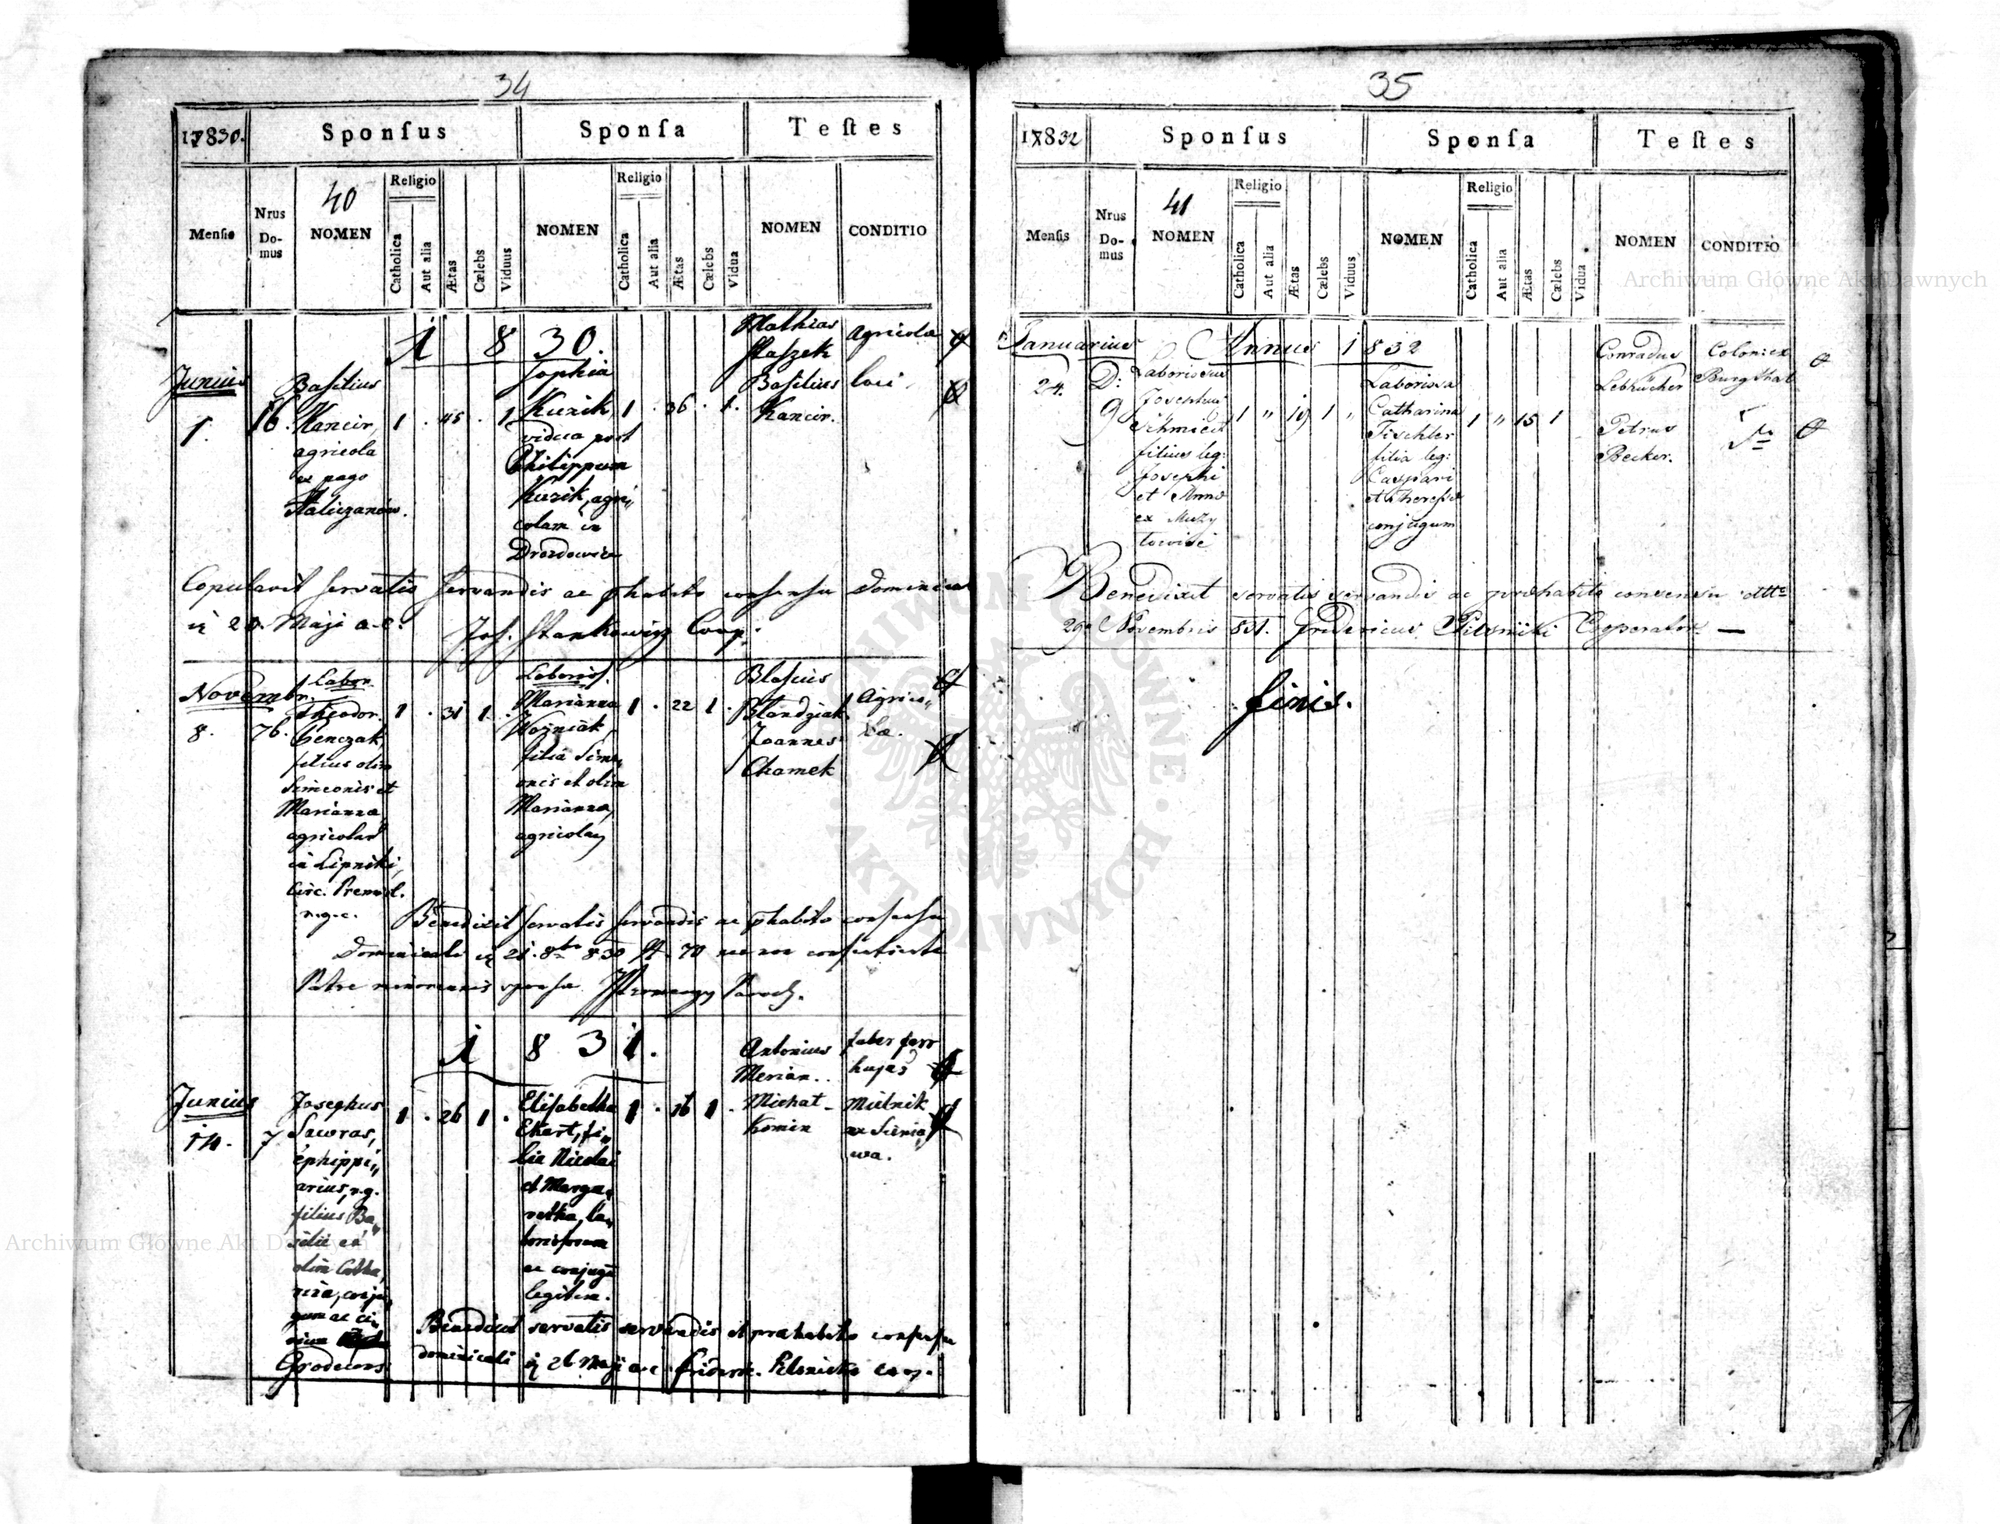 34
17830.
Sponſus
Sponſa
Teſtes
Menſis
Nrus Do-mus
40
NOMEN
Religio
Catholica
Aut alia
Ætas
Cælebs
Viduus
NOMEN
Religio
Catholica
Aut alia
Ætas
Cælebs
Vidua
NOMEN
CONDITIO
1 8 30.
Junius
1.
16.
Basilius
Kancir,
agricola
ex pago
1 . 45 . 1
Sophia
Kuzik
vidua post
Philippum
Kuzik, agri„
colam in
Drozdowice
1 . 36 . 1.
Mathias
Staszek
Basilius
Kancir.
Agricolæ
loci.
Copulavit servatis servandis ac phabito consensu Dominical
Maji a. c. Jos. Stankowicz Coop.
Novembr.
8.
76.
Labor.
Theodor.
Cenczak,
filius olim
Simeonis et
Marianna,
agricolar
in Lipniki,
Circ. Premisl.
r. g. c.
1 . 31 1 .
Laborios.
Marianna
Wożniak,
filia Sime„
onis et olim
Marianna,
agricolar
1 . 22 1 .
Blasius
Blandziak
Joannes
Chamek
Agrico„
læ.
Benedixit servatis servandis ac phabito consensu
Dominicali 21. 8bri 830 70 nec non consentiente
Patre minorennis sponsæ Paroch.
1 8 3 1.
Junius
14.
7
Josephus
Sawras,
ephippi„
arius, r. g.
filius Ba„
silii et
olim Catha„
rina, conju„
gum ac ci„
vium
Grodecens
1 . 26 1 .
Elisabetha
Ekert, fi„
lia Nicolai
et Marga„
retha, la„
boriosorum
ac conjugu
legitim.
1 . 16 1 .
Antonius
Merian..
Michal
Komin
faber ferr
hujas
Mielnik
ex Sienia„
wa.
Benedixit servatis servandis et præhabito consensu
dominicali 26 Maji a. c. Frideric. Pilsnicki coop.
35
17832
Sponſus
Sponſa
Teſtes
Menſis
Nrus Do-mus
41
NOMEN
Religio
Catholica
Aut alia
Ætas
Cælebs
Viduus
NOMEN
Religio
Catholica
Aut alia
Ætas
Cælebs
Vidua
NOMEN
CONDITIO
Januarius
Annus 1832
24.
D:
9
Laboriosus
Josephus
Schmied
filius leg:
Josephi
et Anna
ex Muży
towicé
1 „ 19 1 „
Laboriosa
Catharina
Tischler
filia leg:
Caspari
et Theresia
conjugum
1 „ 15 1
Conradus
Lebrücher
Petrus
Becker.
Colonicæ
Burgthal
Benedixit servatis servandis ac præhabito consensu
29 Novembris 831. Fredericus Pilsnicki Cooperator. —
finis.
Archiwum Główne Akt Dawnych
Archiwum Główne Akt Dawnych
ARCHIWUM GŁÓWNE · AKT DAWNYCH ·